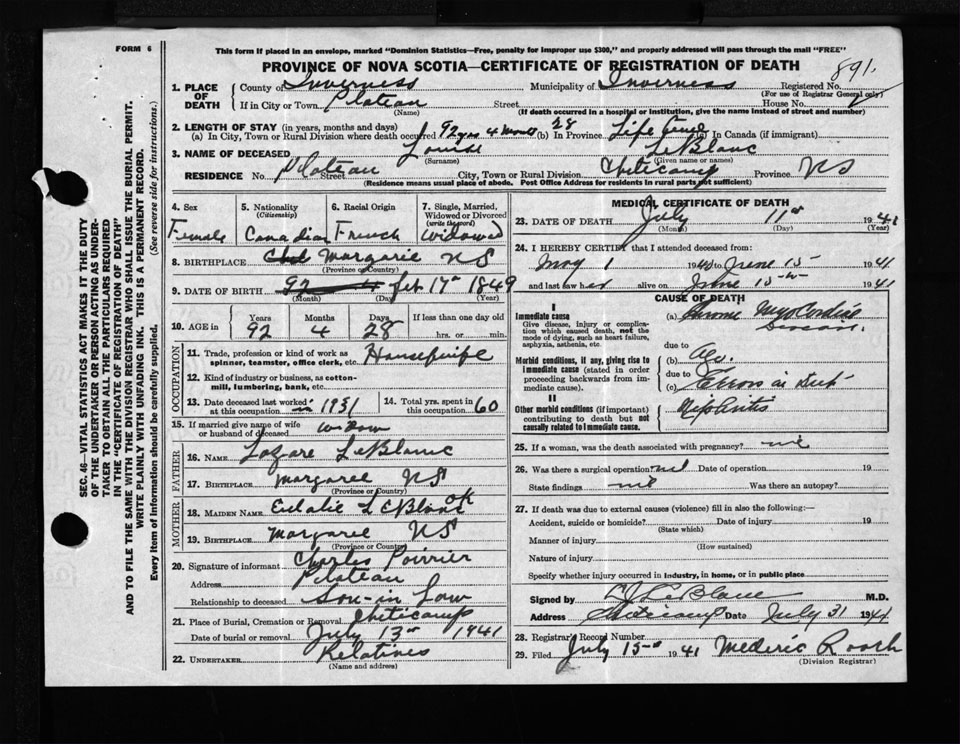 FORM 6
This form if placed in an envelope, marked "Dominion Statistics—Free, penalty for improper use $300," and properly addressed will pass through the mail "FREE"
PROVINCE OF NOVA SCOTIA—CERTIFICATE OF REGISTRATION OF DEATH
891
1. PLACE OF DEATH
County of Inverness Municipality of Inverness Registered No.
(For use of Registrar General only)
If in City or Town Plateau Street House No.
(Name) (If death occurred in a hospital or institution, give the name instead of street and number)
2. LENGTH OF STAY (in years, months and days)
(a) In City, Town or Rural Division where death occurred 92 yrs 4 months 28 (b) In Province Life time (c) In Canada (if immigrant)
3. NAME OF DECEASED Louise LeBlanc
(Surname) (Given name or names)
RESIDENCE No. Plateau Street City, Town or Rural Division Cheticamp Province NS
(Residence means usual place of abode. Post Office Address for residents in rural parts not sufficient)
4. Sex Female
5. Nationality (Citizenship) Canadian
6. Racial Origin French
7. Single, Married, Widowed or Divorced (write the word) Widowed
8. BIRTHPLACE Margarie NS
(Province or Country)
9. DATE OF BIRTH Feb 17th 1849
(Month) (Day) (Year)
10. AGE in Years 92 Months 4 Days 28 If less than one day old
hrs. or min.
OCCUPATION
11. Trade, profession or kind of work as spinner, teamster, office clerk, etc. Housewife
12. Kind of industry or business, as cotton-mill, lumbering, bank, etc.
13. Date deceased last worked at this occupation in 1931
14. Total yrs. spent in this occupation 60
15. If married give name of wife or husband of deceased widow
FATHER
16. NAME Lazare LeBlanc
17. BIRTHPLACE Margaree NS
(Province or Country)
MOTHER
18. MAIDEN NAME Eulalie LeBlanc OK
19. BIRTHPLACE Margaree NS
(Province or Country)
20. Signature of informant Charles Poirrier
Address Plateau
Relationship to deceased Son-in Law
21. Place of Burial, Cremation or Removal Cheticamp
Date of burial or removal July 13th 1941
22. UNDERTAKER Relatives
(Name and address)
MEDICAL CERTIFICATE OF DEATH
23. DATE OF DEATH July 11th 1941
(Month) (Day) (Year)
24. I HEREBY CERTIFY that I attended deceased from:
May 1 19 to June 15 1941
and last saw her alive on June 15 1941
CAUSE OF DEATH
I
Immediate cause
Give disease, injury or complication which caused death, not the mode of dying, such as heart failure, asphyxia, asthenia, etc.
(a) Chronic Myocardial
due to
Morbid conditions, if any, giving rise to immediate cause (stated in order proceeding backwards from immediate cause).
(b)
due to
(c)
II
Other morbid conditions (if important) contributing to death but not causally related to immediate cause.
25. If a woman, was the death associated with pregnancy?
26. Was there a surgical operation? nil Date of operation 19
State findings nil Was there an autopsy?
27. If death was due to external causes (violence) fill in also the following:—
Accident, suicide or homicide? Date of injury 19
(State which)
Manner of injury
(How sustained)
Nature of injury
Specify whether injury occurred in industry, in home, or in public place
Signed by LeBlanc M.D.
Address Cheticamp Date July 31 1941
28. Registrar's Record Number
29. Filed July 15 1941 Mederic Roach
(Division Registrar)
SEC. 46—VITAL STATISTICS ACT MAKES IT THE DUTY
OF THE UNDERTAKER OR PERSON ACTING AS UNDER-
TAKER TO OBTAIN ALL THE PARTICULARS REQUIRED
IN THE "CERTIFICATE OF REGISTRATION OF DEATH"
AND TO FILE THE SAME WITH THE DIVISION REGISTRAR WHO SHALL ISSUE THE BURIAL PERMIT.
WRITE PLAINLY WITH UNFADING INK. THIS IS A PERMANENT RECORD.
Every item of information should be carefully supplied. (See reverse side for instructions.)